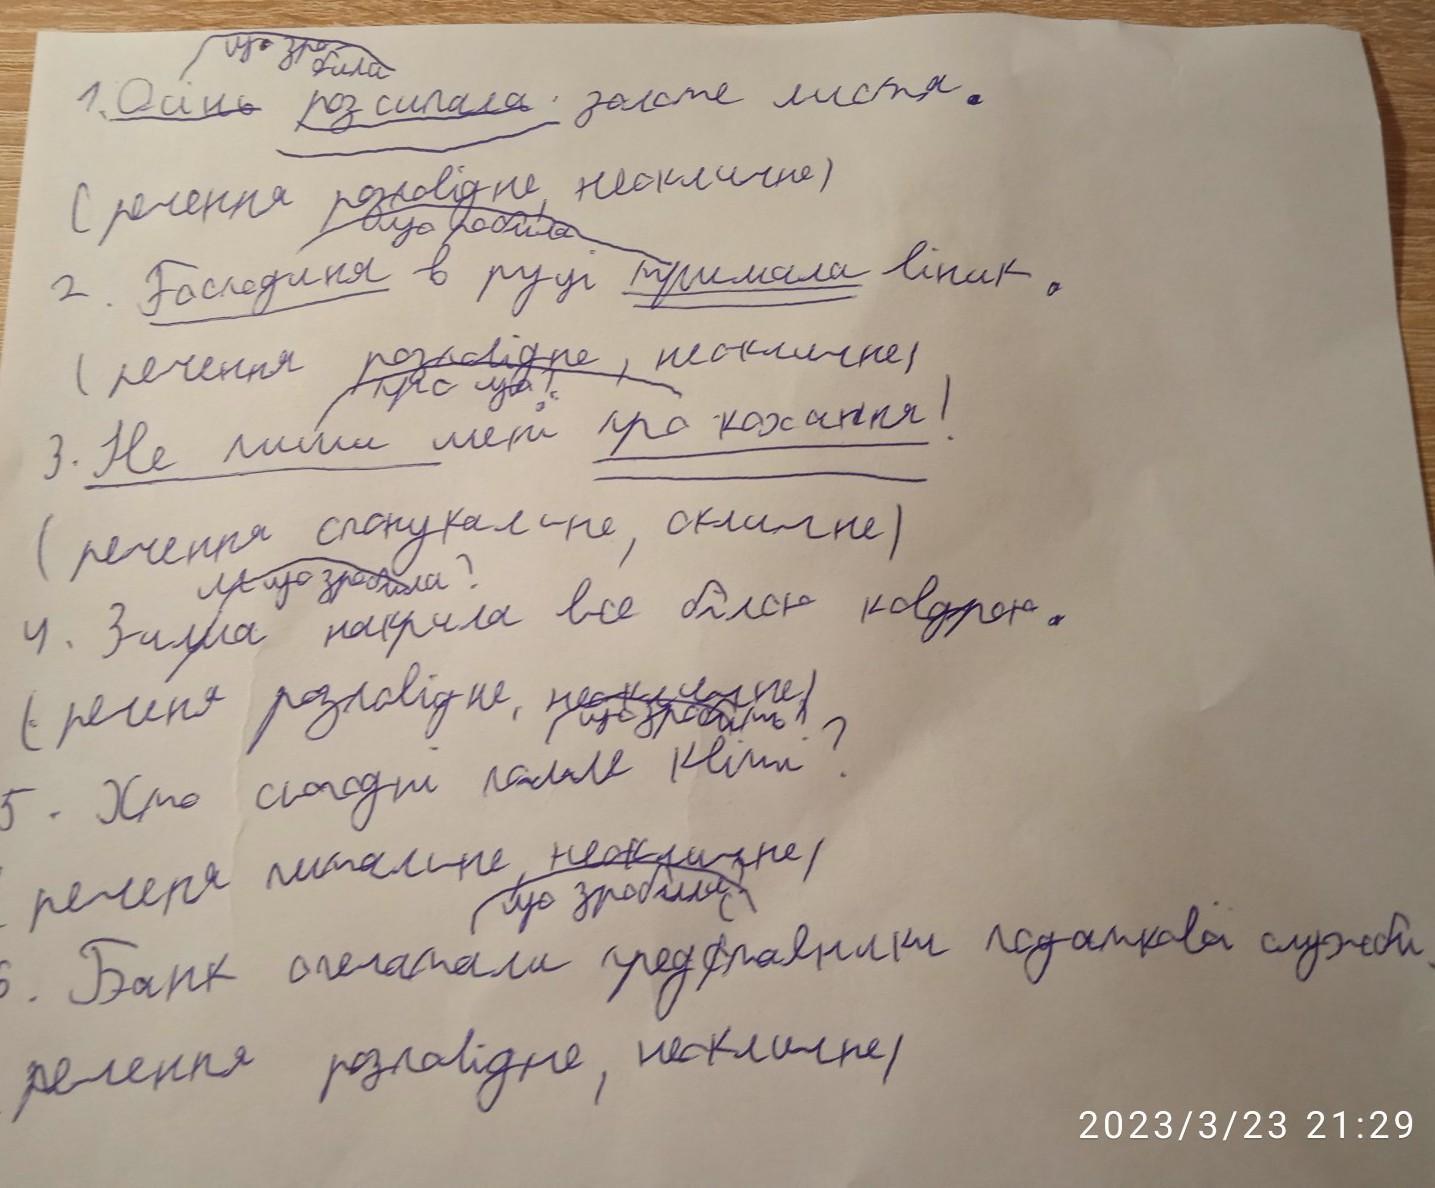 що зро-
била
1. Осінь розсипала золоте листя.
(речення розповідне, неокличне)
що робила
2. Господиня в руці тримала віник.
(речення розповідне, неокличне)
про що?
3. Не пиши мені про кохання!
(речення спонукальне, окличне)
що зробила?
4. Зима накрила все білою ковдрою.
(реченя розповідне, неокличне)
що зробить?
5. Хто сьогодні полле квіти?
реченя питальне, неокличне)
що зробили?
6. Банк опечатали представники податкової служби.
речення розповідне, неокличне)
2023/3/23 21:29